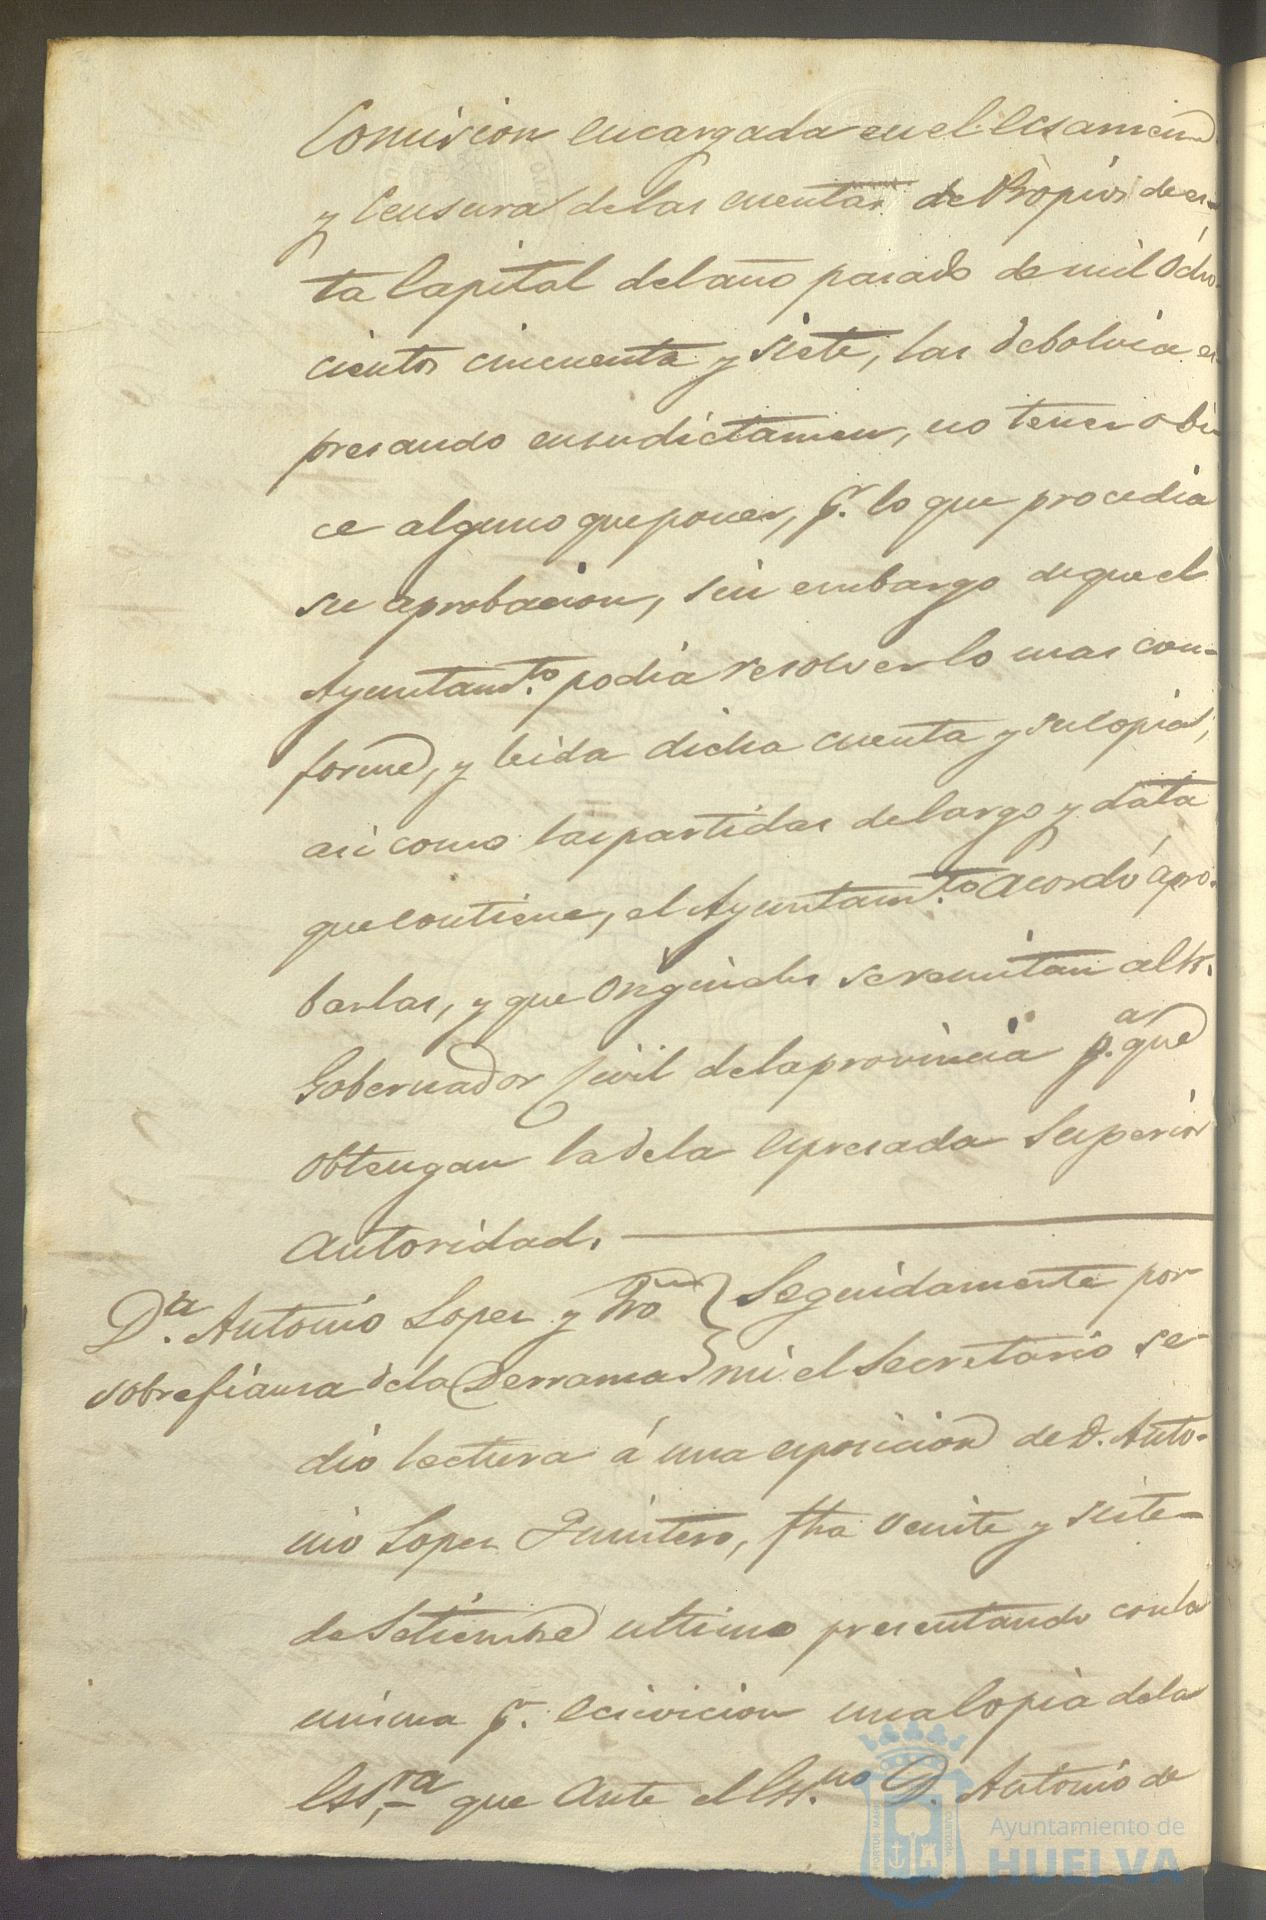 Comision encargada en el ecsamen
y Censura de las cuentas de Propios de es-
ta Capital del año pasado de mil Ocho-
cientos cincuenta y siete, las debolvia es
presando en su dictamen, no tener obi-
ce alguno que poner, pr. lo que procedia
su aprobacion, sin embargo de que el
Ayuntamto. podia resolver lo mas con-
forme, y leida dicha cuenta y su copia,
asi como las partidas de Cargo y data
que contiene, el Ayuntamto. acordó apro-
barlas, y que Originales se remitan al Sr.
Gobernador Civil de la provincia pa. que
obtengan la de la espresada Superior
Autoridad.
Da. Antonio Lopez y Qro
sobre fianza de la Derrama
Seguidamente por
mi el Secretario se
dio lectura á una esposicion de D. Anto-
nio Lopez Quintero, fha veinte y siete
de Setiembre ultimo presentando con la
misma pr. ecsivicion una Copia de la
Essra. que ante el Essno. D. Antonio de
Ayuntamiento de
HUELVA
PORTUS MARIS
CUSTODIA